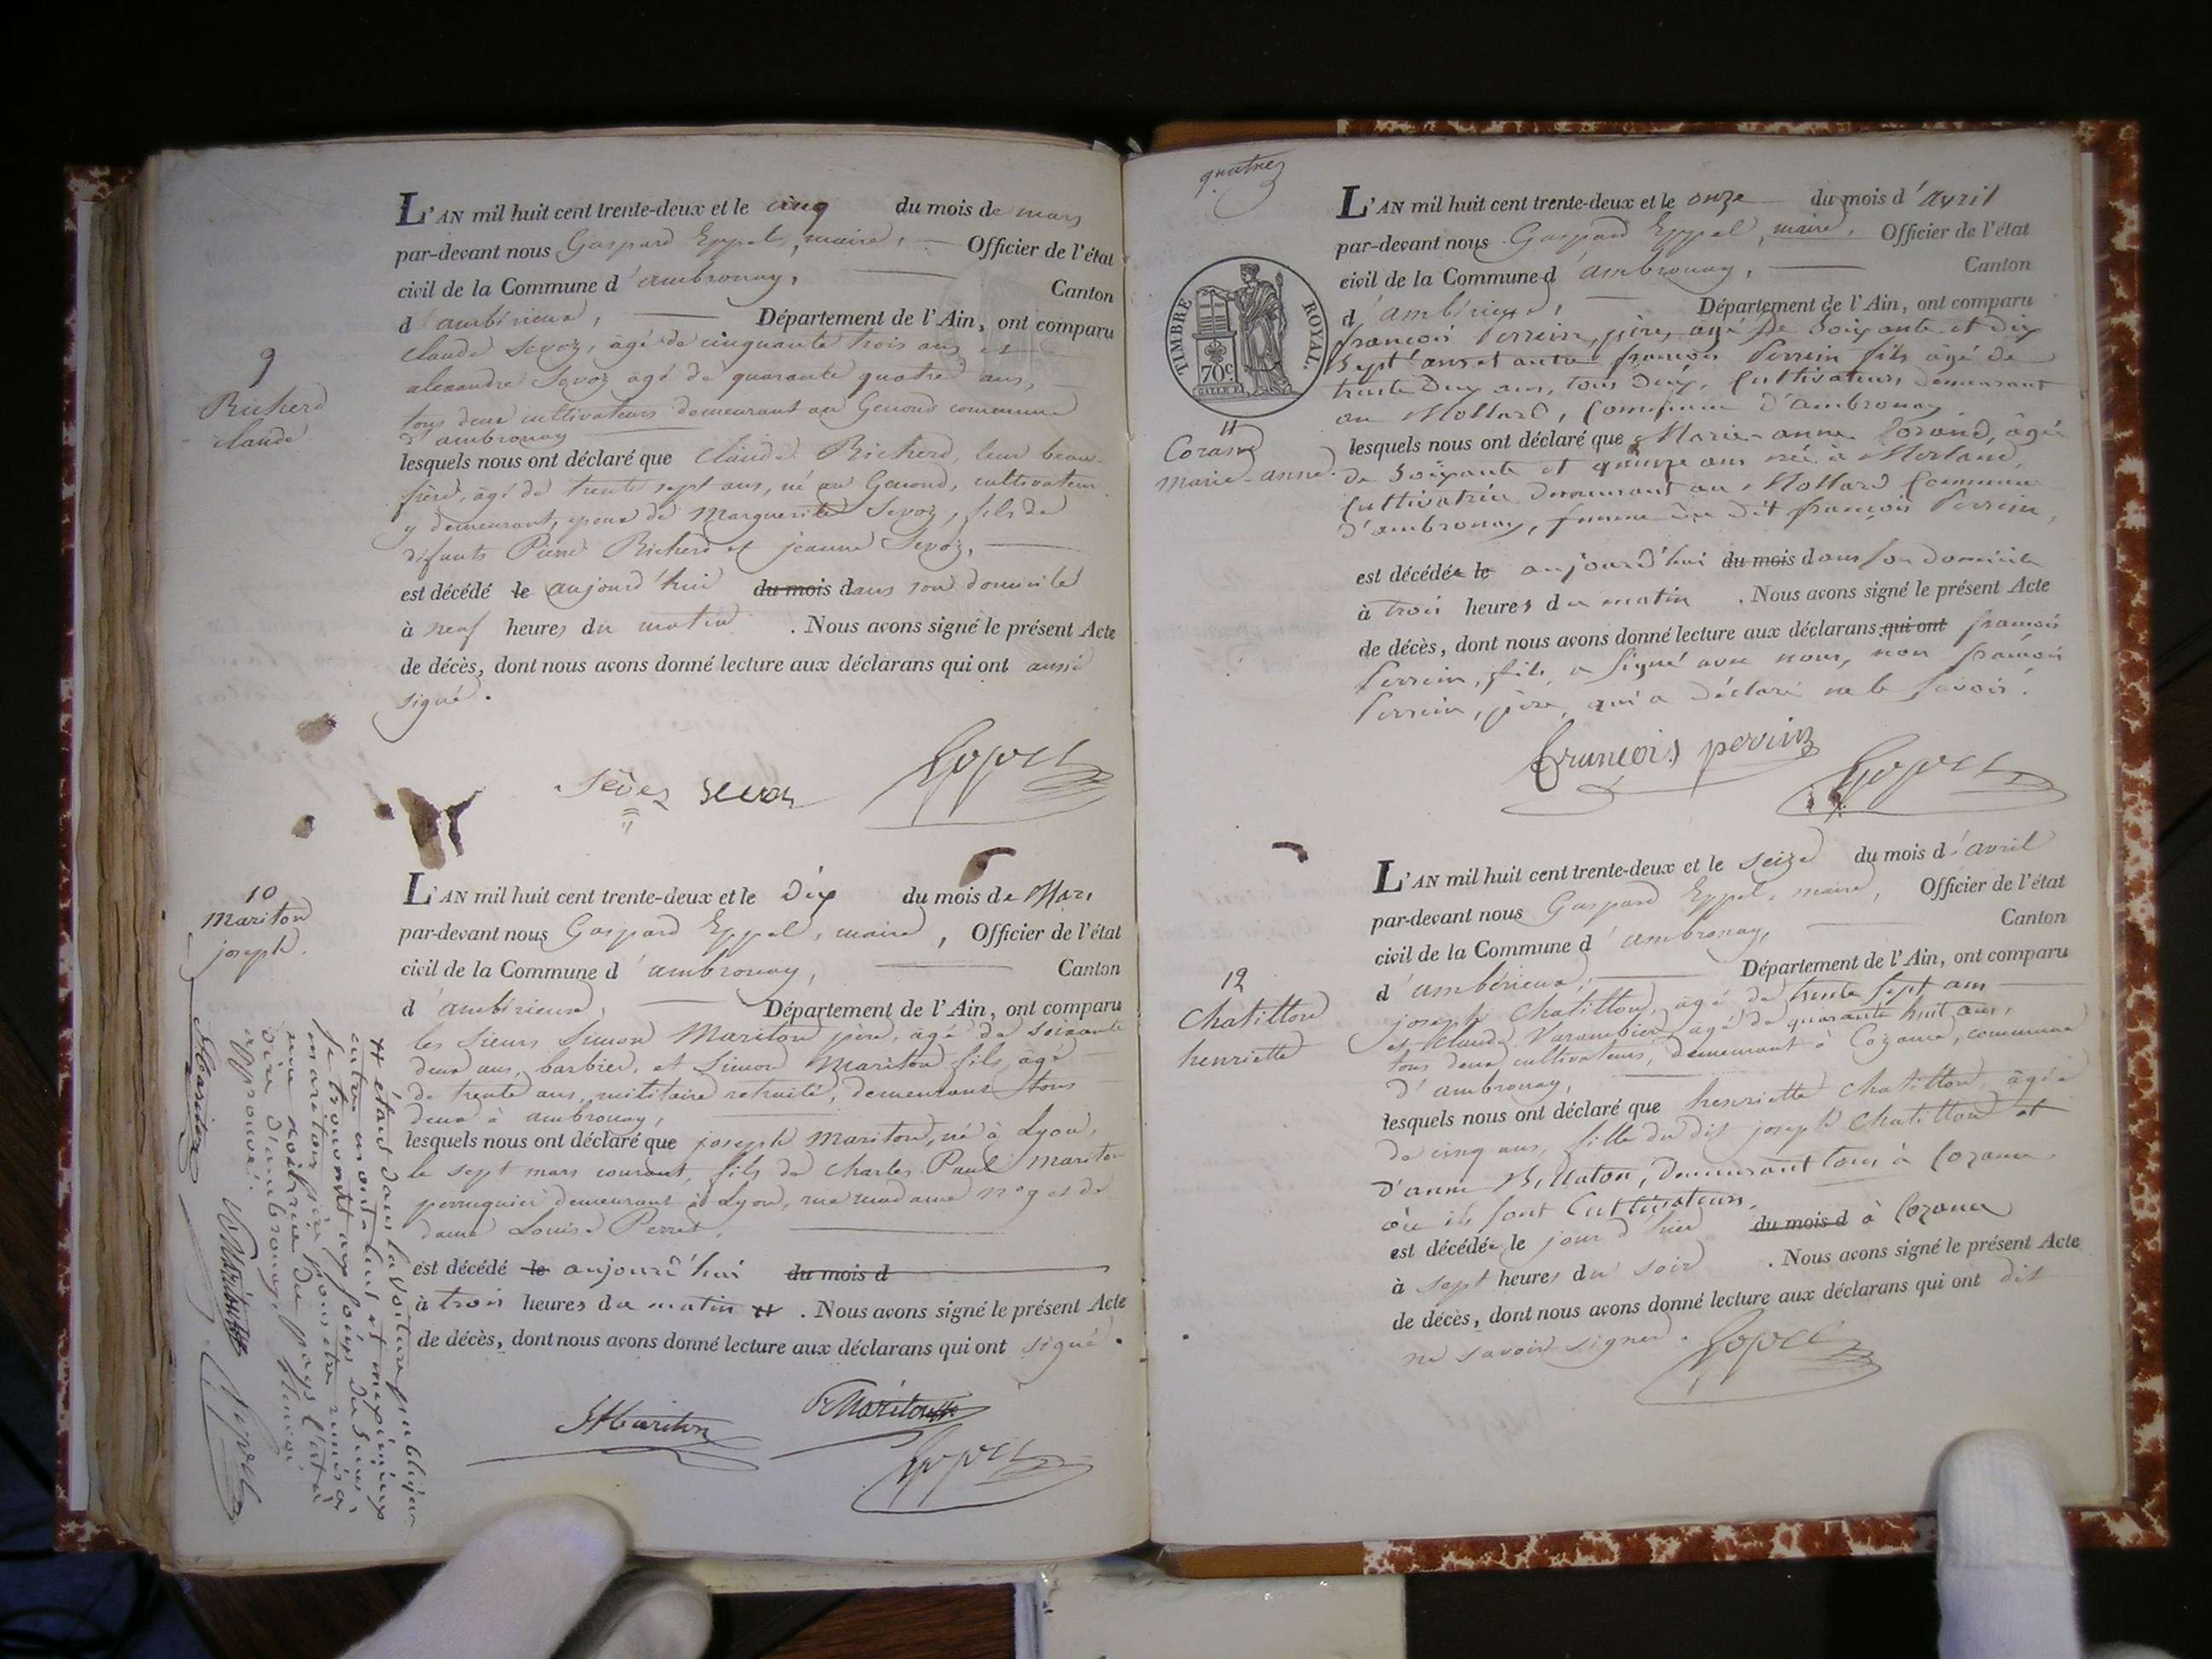 9
Richerd
claude
L'AN mil huit cent trente-deux et le cinq du mois de mars
par-devant nous Gaspard Eppel, maire, Officier de l'état
civil de la Commune d'ambronay, Canton
d'ambérieux, Département de l'Ain, ont comparu
claude Sevoz, âgé de cinquante trois ans et
alexandre Sevoz âgé de quarante quatre ans,
tous deux cultivateurs demeurant au Genoud commune
d'ambronay
lesquels nous ont déclaré que Claude Richerd, leur beau-
frère, âgé de trente sept ans, né au Genoud, cultivateur
y demeurant, epoux de Marguerite Sevoz, fils de
défunts Pierre Richerd et jeanne Sevoz,
est décédé le aujourd'hui du mois dans son domicile
à neuf heures du matin . Nous avons signé le présent Acte
de décès, dont nous avons donné lecture aux déclarans qui ont aussi
signé.
Eppel
10
Mariton
joseph.
L'AN mil huit cent trente-deux et le Dix du mois de Mars
par-devant nous Gaspard Eppel, maire, Officier de l'état
civil de la Commune d'ambronay, Canton
d'ambérieux, Département de l'Ain, ont comparu
les Sieurs Simon Mariton père, âgé de soixante
deux ans, barbier, et Simon Mariton fils, âgé
de trente ans, militaire retraité, demeurant tous
deux à ambronay,
lesquels nous ont déclaré que joseph Mariton, né à Lyon,
le sept mars courant, fils de Charles Paul Mariton
perruquier demeurant à Lyon, rue madame n° 9 et de
dame Louise Perret,
est décédé le aujourd'hui du mois d
à trois heures du matin # . Nous avons signé le présent Acte
de décès, dont nous avons donné lecture aux déclarans qui ont signé.
SMariton Mariton
Eppel
# étant dans la voiture publique
se trouvant aux soins du Sieur
mariton père pour être remis à
une nourrice du pays, c'est à
dire d'ambronay,
approuvé.
Mariton Mariton Eppel
quatre
TIMBRE ROYAL.
70c
11
Corand
Marie-anne.
L'AN mil huit cent trente-deux et le onze du mois d'Avril
par-devant nous Gaspard Eppel, maire, Officier de l'état
civil de la Commune d'ambronay, Canton
d'ambérieux, Département de l'Ain, ont comparu
françois Perrein, père, âgé de soixante et dix
sept ans et autre françois Perrein fils âgé de
trente deux ans, tous deux, Cultivateurs demeurant
au Mollard, Commune d'ambronay
lesquels nous ont déclaré que Marie-anne Corand, âgée
de soixante et quinze ans née à Merland,
Cultivatrice demeurant au Mollard Commune
d'ambronay, femme du dit françois Perrein,
est décédée le aujourd'hui du mois dans son domicile
à trois heures du matin . Nous avons signé le présent Acte
de décès, dont nous avons donné lecture aux déclarans qui ont françois
Perrein, fils, a signé avec nous, non françois
Perrein, père, qui a déclaré ne le savoir.
françois perrin Eppel
12
Chatillon
henriette
L'AN mil huit cent trente-deux et le seize du mois d'avril
par-devant nous Gaspard Eppel, maire, Officier de l'état
civil de la Commune d'ambronay, Canton
d'ambérieux, Département de l'Ain, ont comparu
joseph Chatillon, âgé de trente sept ans
et Claude Varambier âgé de quarante huit ans,
tous deux cultivateurs, demeurant à Cozance, commune
d'ambronay,
lesquels nous ont déclaré que henriette Chatillon âgée
de cinq ans, fille du dit joseph Chatillon et
d'anne Billaton, demeurant tous à Cozance
où ils sont Cultivateurs,
est décédée le jour d'hier du mois d à Cozance
à sept heures du soir . Nous avons signé le présent Acte
de décès, dont nous avons donné lecture aux déclarans qui ont dit
ne savoir signer. Eppel